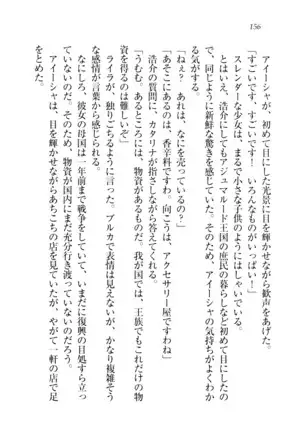 156
アイーシャが、初めて目にした光景に目を輝かせながら歓声をあげた。
「すごいです、すごいです！　いろんなものがいっぱい！」
スレンダーな少女は、まるで小さな子供のようにはしゃいでいる。
とはいえ、浩介にしてもアジュマルード王国の庶民の暮らしなど初めて目にするもの
で、同じように新鮮な驚きを感じていた。そのため、アイーシャの気持ちがよくわか
る気がする。
「ねぇ？　あれは、なにを売っているの？」
「あそこにあるのは、香辛料ですわ。向こうは、アクセサリー屋ですわね」
浩介の質問に、カタリナが指さしながら答えてくれる。
「うむむ。あるところには、物資があるものだ。我が国では、王族でもこれだけの物
資を得るのは難しいぞ」
ライラが、独りごちるように言った。ブルカで表情は見えないが、かなり複雑そう
な感情が言葉から感じられる。
なにしろ、彼女の母国は一年前まで戦争をしていて、いまだに復興の目処すら立っ
ていないのだ。そのため、物資が国内にまだ充分行き渡っていないのだろう。
アイーシャは、目を輝かせながらあちこちの店を見ていたが、やがて一軒の店で足
をとめた。